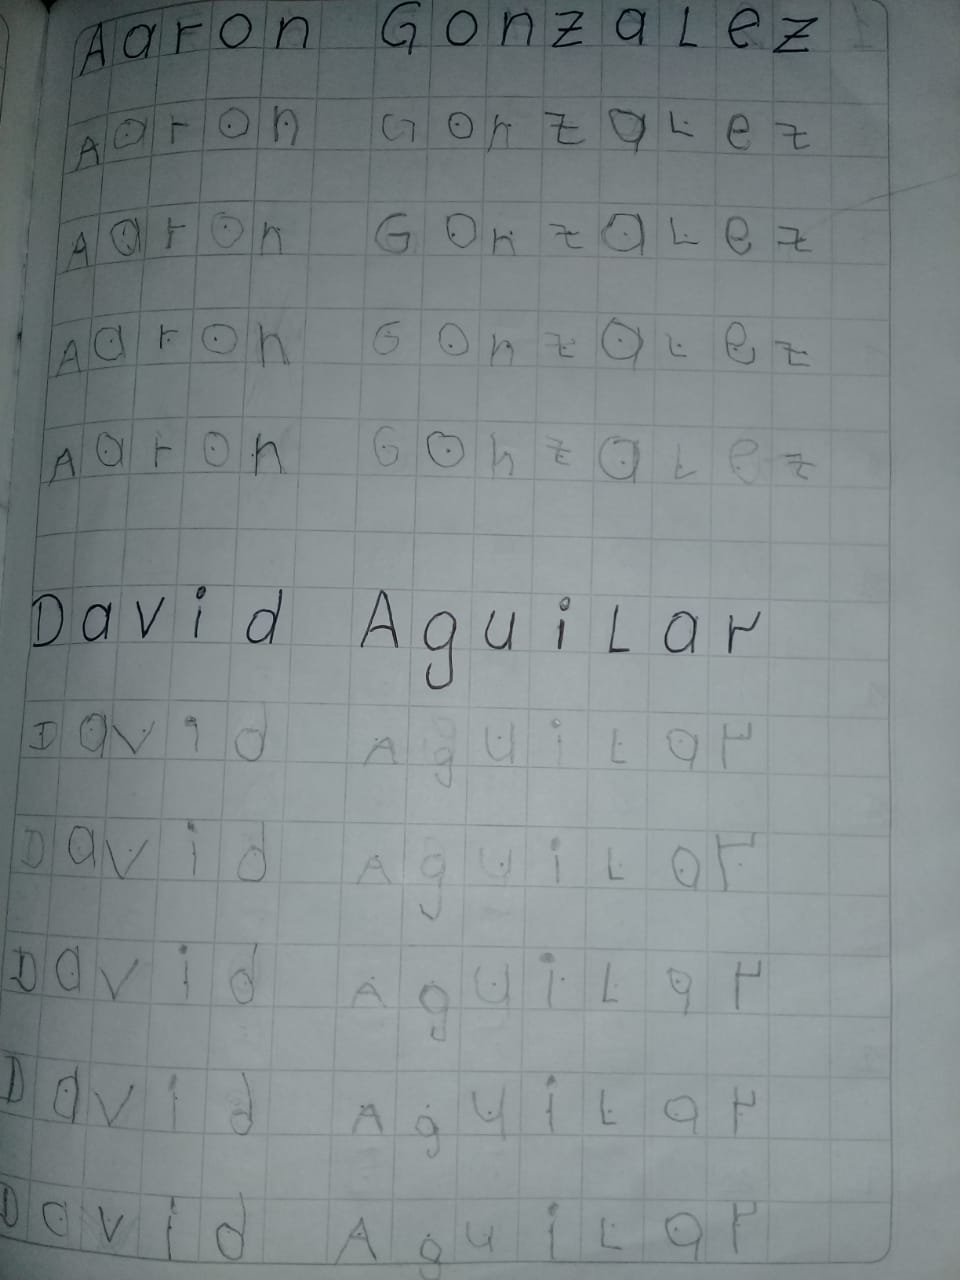 Aaron GonzaLez
Aaron GonzaLez
Aaron GonzaLez
Aaron GonzaLez
Aaron GonzaLez
David AguiLar
David AguiLar
David AguiLar
David AguiLar
David AguiLar
David AguiLar